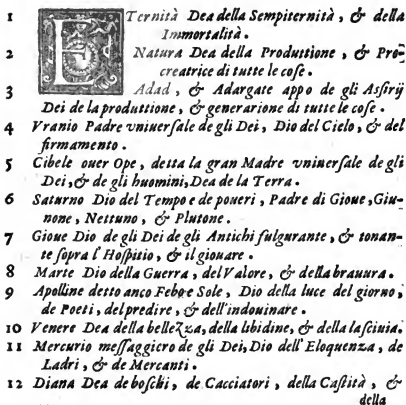 1 ETernità Dea della Sempiternità, & della
Immortalità.
2 Natura Dea della Produttione, & Pro-
creatrice di tutte le cose.
3 Adad, & Adargate appo de gli Assirij
Dei de la produttione, & generarione di tutte le cose.
4 Vranio Padre vniuersale de gli Dei, Dio del Cielo, & del
firmamento.
5 Cibele ouer Ope, detta la gran Madre vniuersale de gli
Dei, & de gli huomini, Dea de la Terra.
6 Saturno Dio del Tempo e de poueri, Padre di Gioue, Giu-
none, Nettuno, & Plutone.
7 Gioue Dio de gli Dei de gli Antichi fulgurante, & tonan-
te sopra l'Hospitio, & il giouare.
8 Marte Dio della Guerra, del Valore, & della brauura.
9 Apolline detto anco Febo e Sole, Dio della luce del giorno,
de Poeti, del predire, & dell'indouinare.
10 Venere Dea della bellezza, della libidine, & della lasciuia.
11 Mercurio messaggicro de gli Dei, Dio dell'Eloquenza, de
Ladri, & de Mercanti.
12 Diana Dea de boschi, de Cacciatori, della Castità, &
della